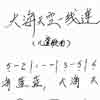 大海天空一线连
（儿童歌曲）
5-2 | --- | 3-5 | 6
海蓝蓝，大海天